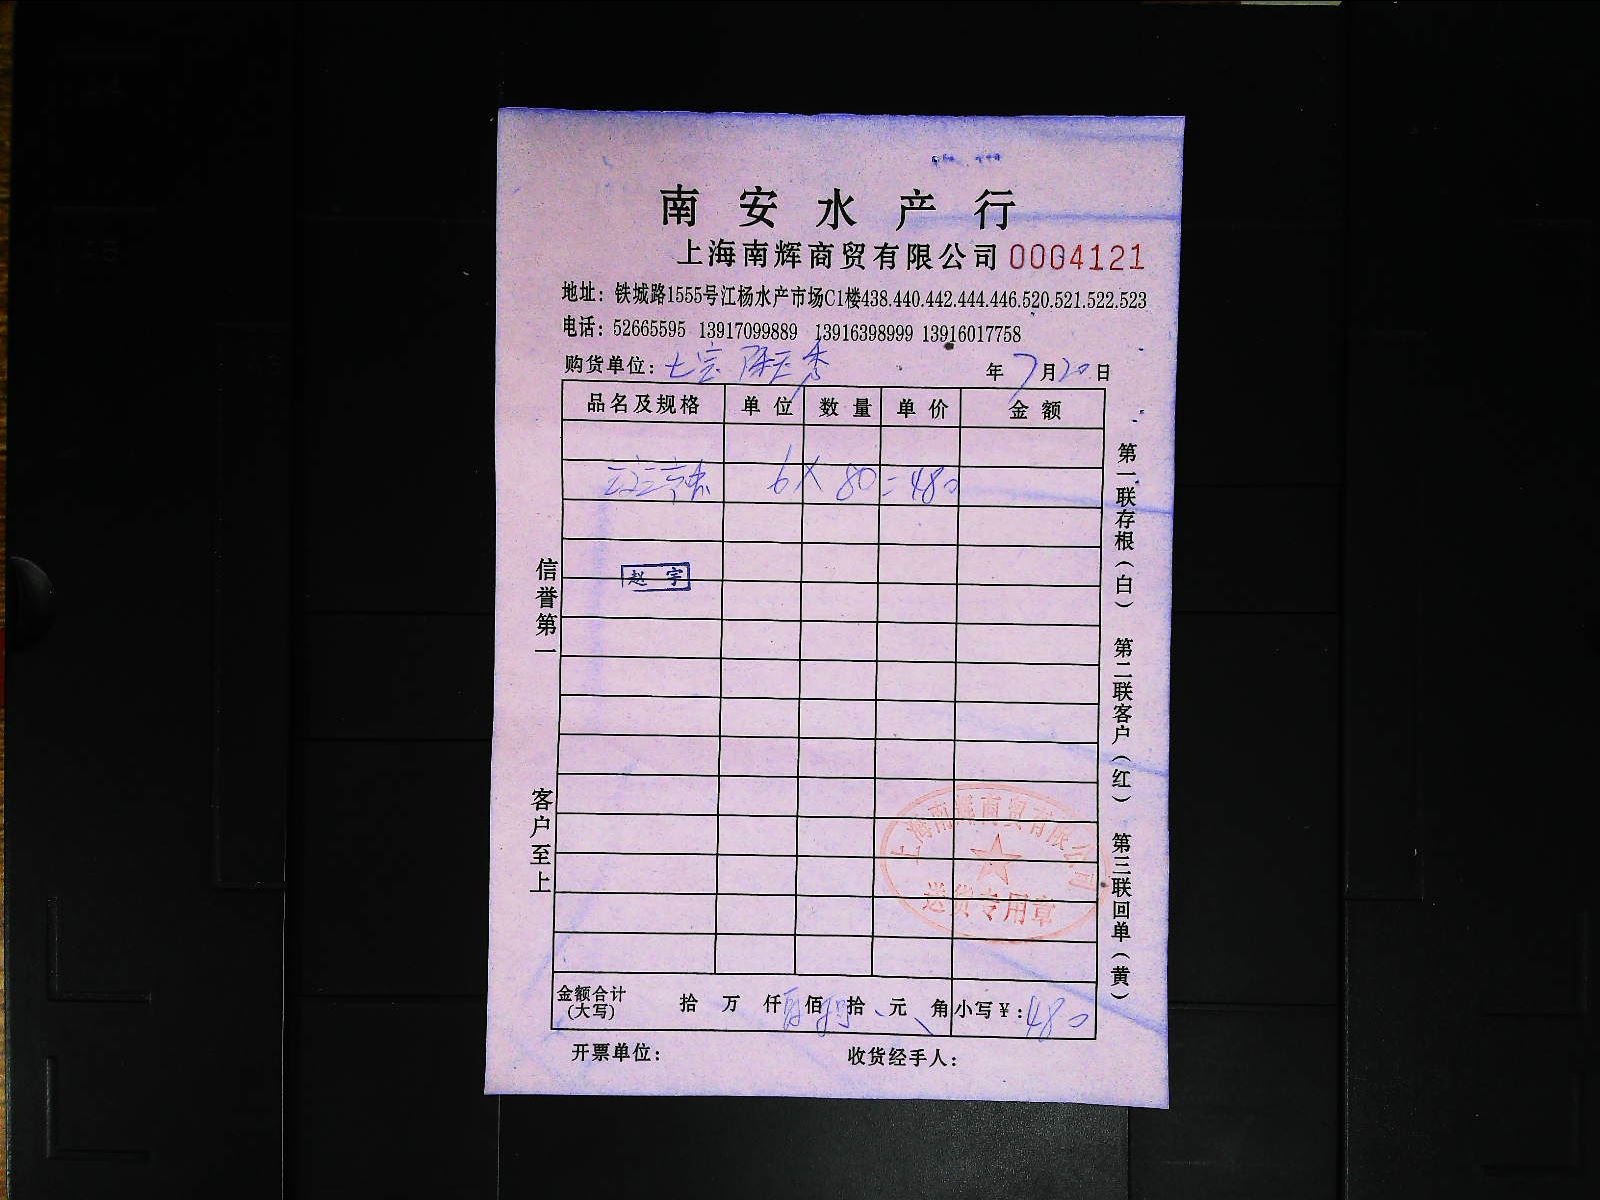 南安水产行
上海南辉商贸有限公司 0004121
地址：铁城路1555号江杨水产市场C1楼438.440.442.444.446.520.521.522.523
电话：52665595 13917099889 13916398999 13916017758
购货单位：七宝 陈玉秀 年7月20日
品名及规格 单位 数量 单价 金额
6×80=480
赵宇
信誉第一
客户至上
第一联存根（白） 第二联客户（红） 第三联回单（黄）
上海南辉商贸有限公司
送货专用章
金额合计（大写） 拾 万 仟 佰 拾 元 角 小写￥：480
开票单位： 收货经手人：